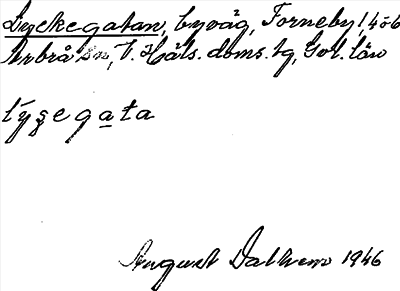 Lyckegatan, byväg, Forneby 1, 4-6
Arbrå sn, V. Häls. doms. tg, Gvl. län
týʂegata
August Dalhem 1946